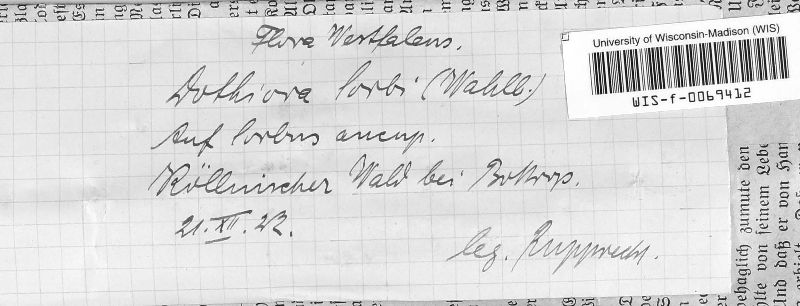 Flora Westfalens.
Dothiora Sorbi (Wahlb.)
Auf Sorbus aucup.
Köllnischer Wald bei Bottrop.
21. XII. 22.
leg. Rupprecht.
University of Wisconsin-Madison (WIS)
WIS-f-0069412
ehaglich zumute den
lte von seinem Lebe
Und daß er von Han